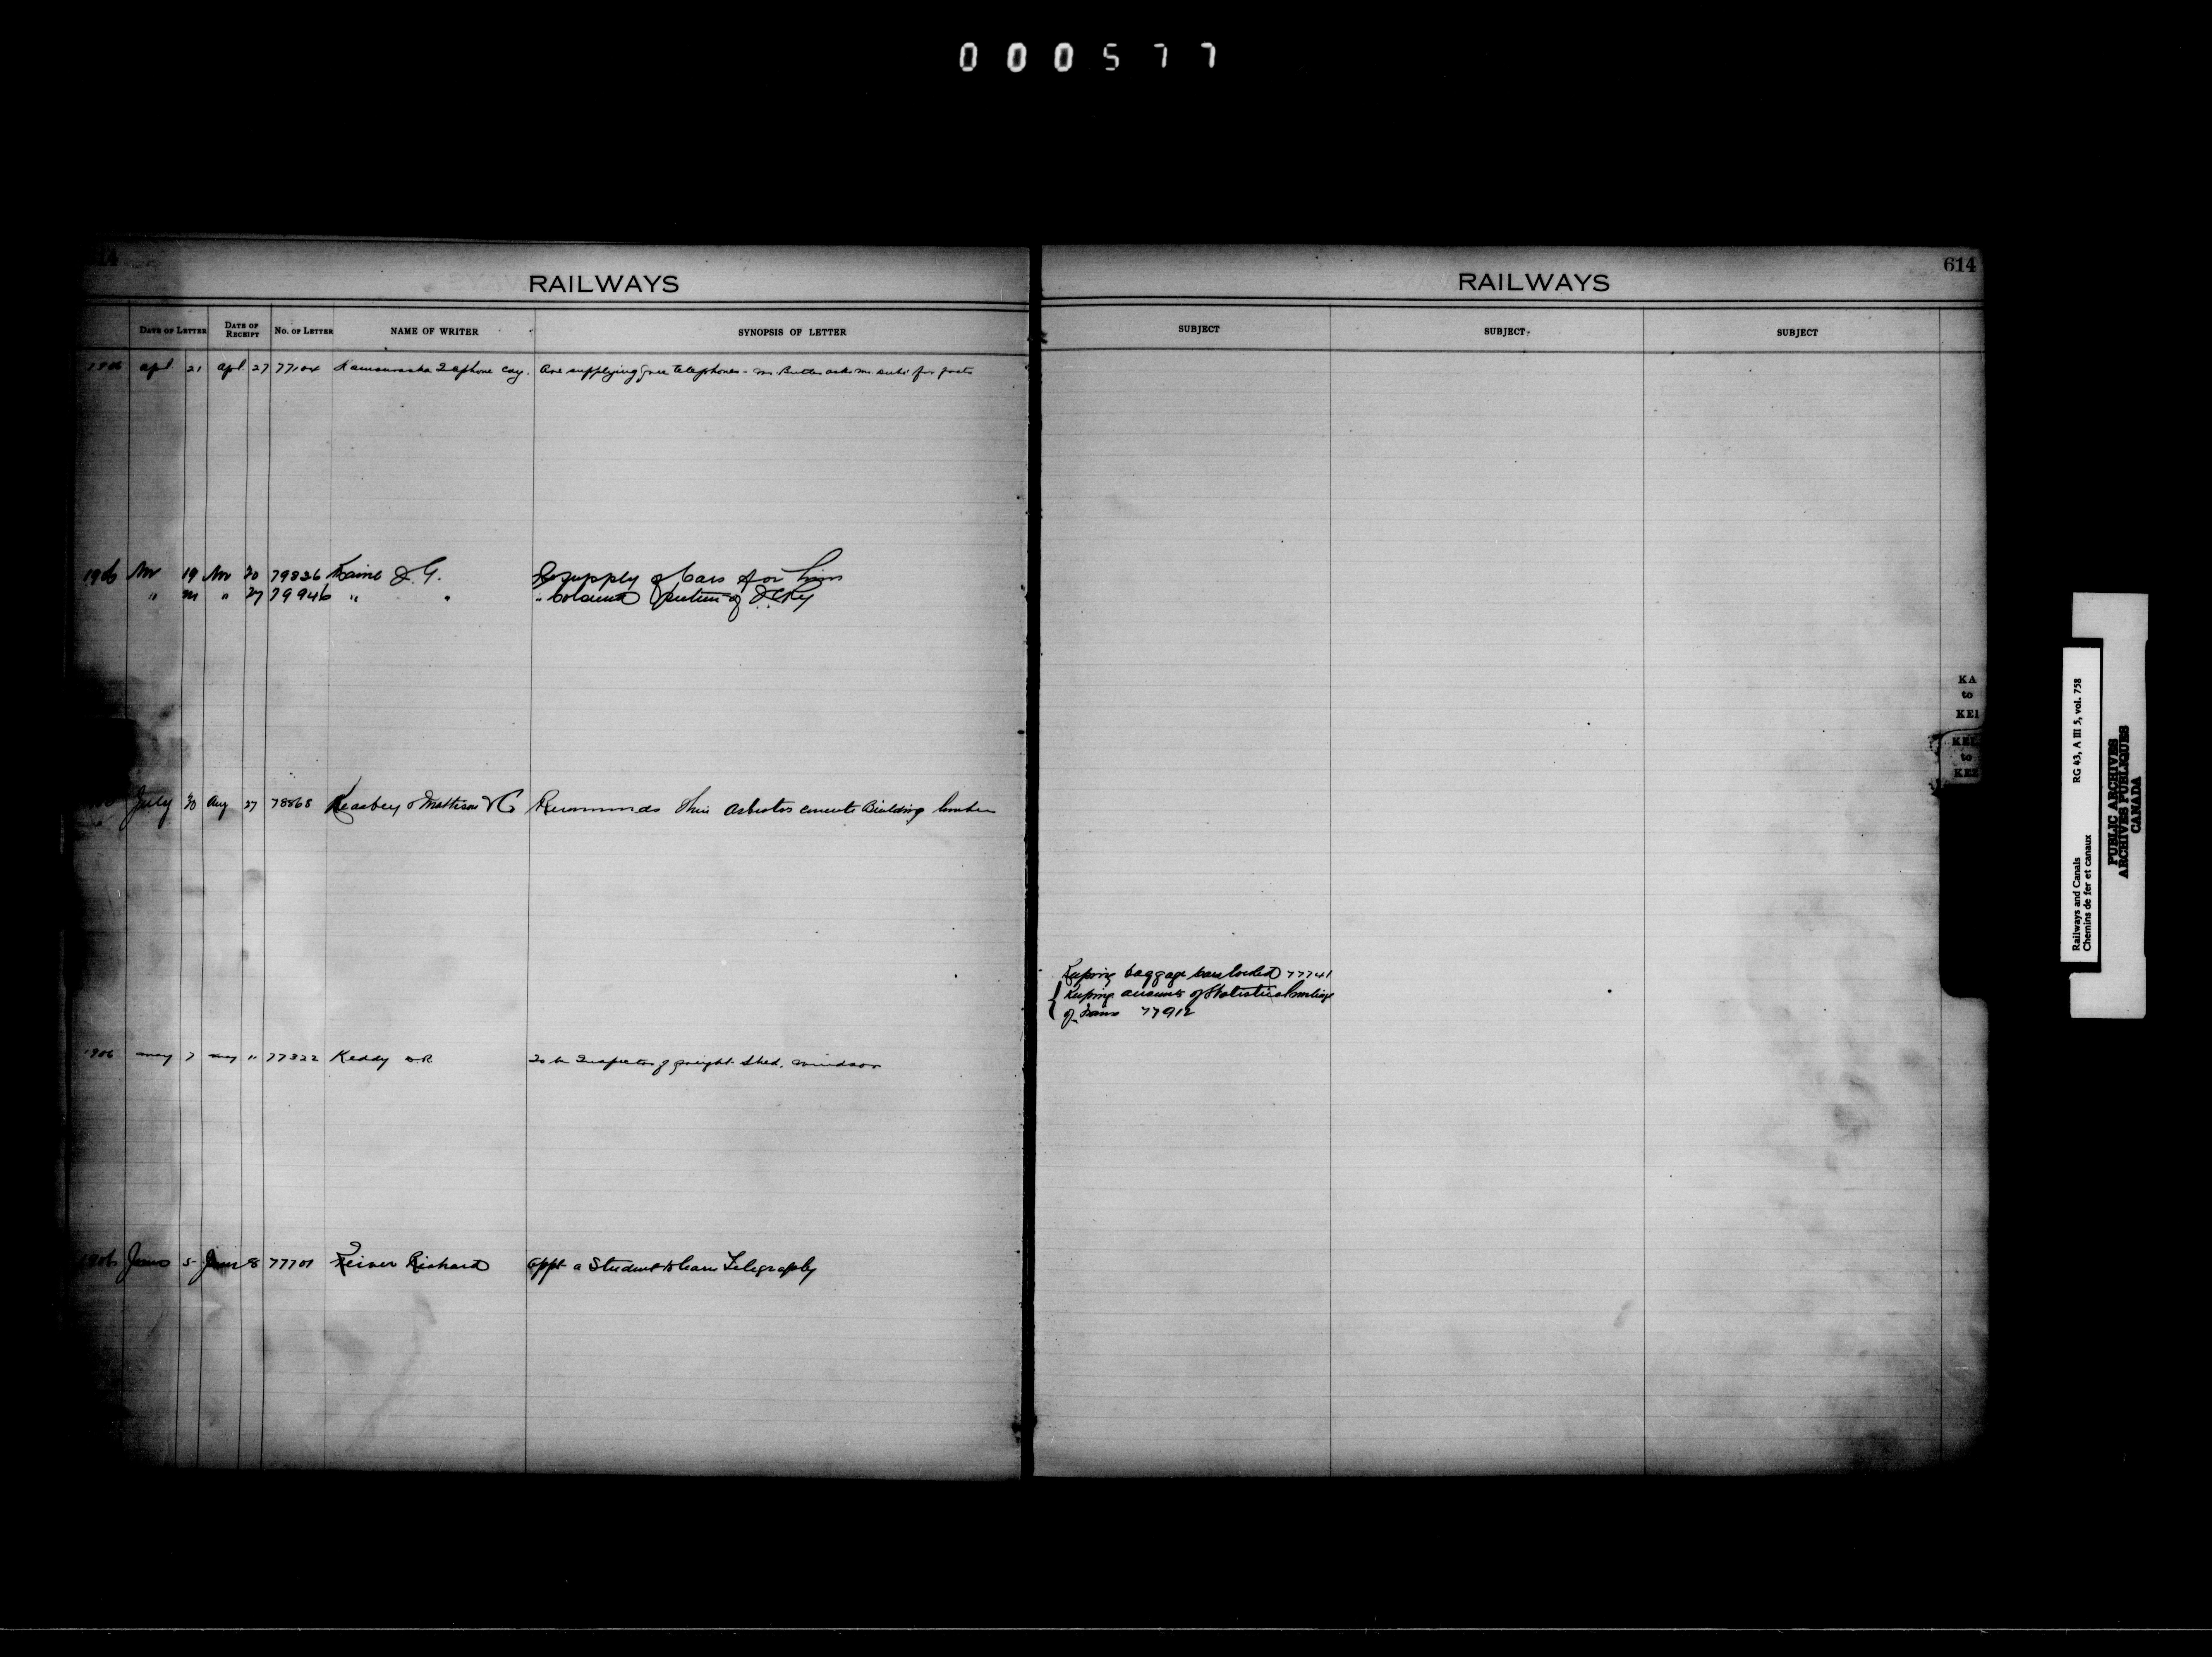 000577
614
RAILWAYS
DATE OF LETTER DATE OF RECEIPT No. OF LETTER NAME OF WRITER SYNOPSIS OF LETTER
1906 apl 21 apl 27 77104 Kamouraska Telephone Coy. Are supplying free telephones - Mr. Butler asks Mr. for facts
1906 Nov 19 Nov 20 79826 Kaine J. G. Re supply of Cars for him
" " 27 79946 " " "
July 30 Aug 27 78868 Keasbey & Mattison Co Recommends their Asbestos cements Building lumber
1906 may 7 may 11 77322 Keddy To be Inspector of freight shed, Windsor
1906 June 5 June 8 77701 Richard Appt a Student to learn Telegraphy
RAILWAYS
614
SUBJECT SUBJECT SUBJECT
Keeping baggage cars locked 77741
Keeping accounts of Statistical mileage
of 77912
KA
to
KEI
KEL
to
KEZ
Railways and Canals RG 43, A III 5, vol. 758
Chemins de fer et canaux
PUBLIC ARCHIVES
ARCHIVES PUBLIQUES
CANADA